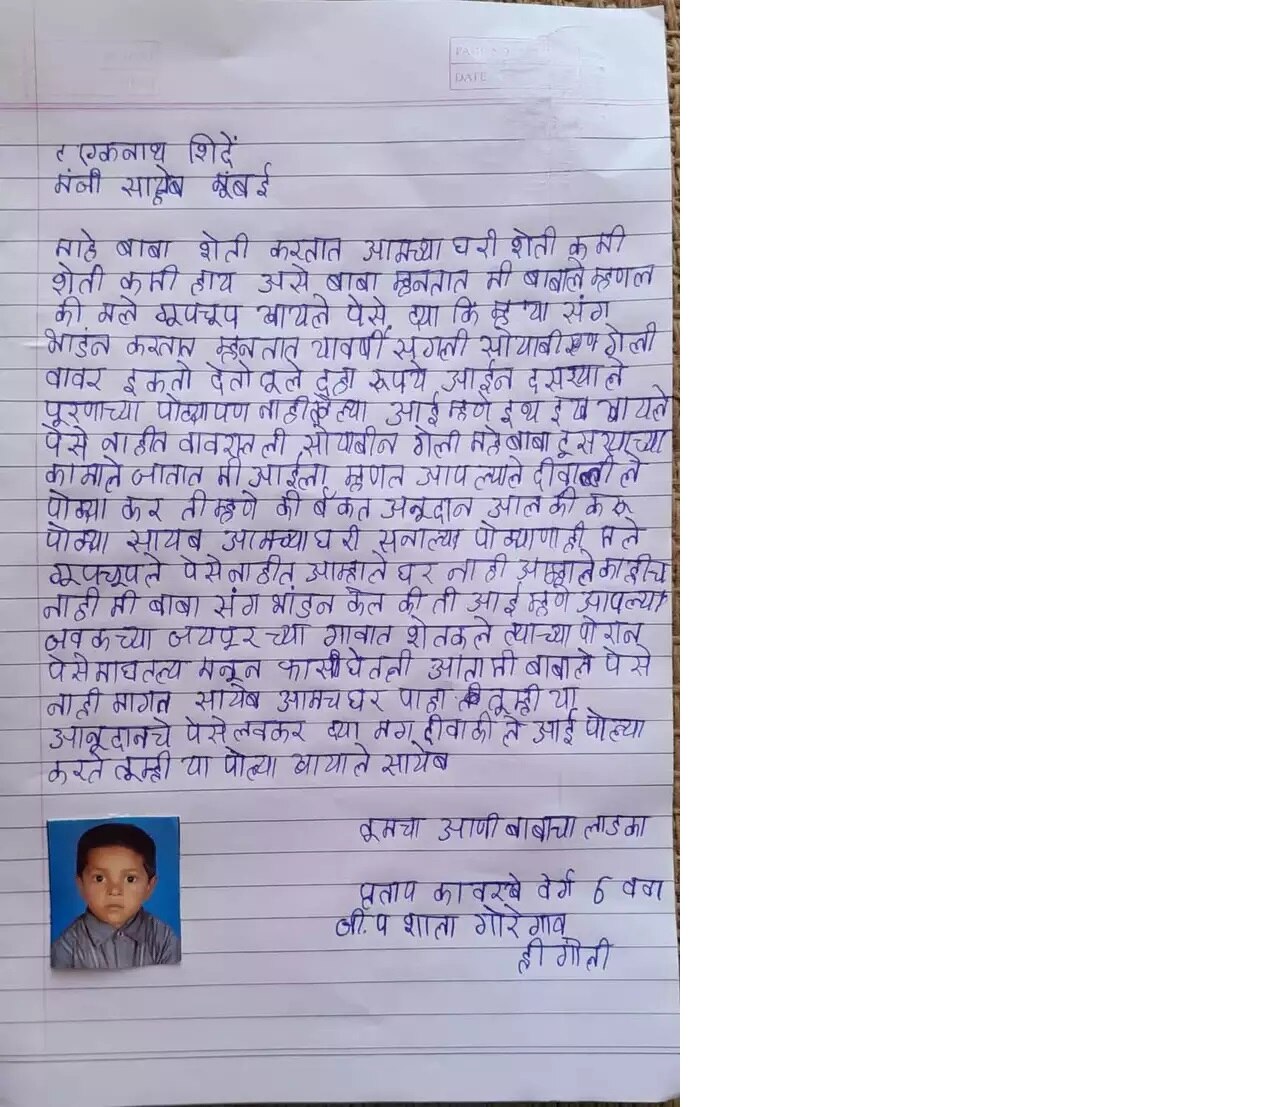 PAGE NO
DATE
एकनाथ शिदें
मंत्री साहेब मूंबई
माहे बाबा शेती करतात आमच्या घरी शेती कमी
शेती कमी हाय असे बाबा म्हनतात मी बाबाले म्हणल
की मले गूपचूप खायले पेसे द्या कि म्ह या संग
भाडंन करतात म्हनतात यावर्षी सगली सोयाबीण गेली
वावर इकतो देतो तूले दहा रूपये आईन दसऱ्याले
पूरणाच्या पोळ्यापण नाही केल्या आई म्हणे इथ इख खायले
पेसे नाहीत वावरातली सोयाबीन गेली महे बाबा दूसऱ्याच्या
कामाले जातात मी आईला म्हणल आपल्याले दीवाळीले
पोळ्या कर ती म्हणे की बँकत अनूदान आल की करू
पोळ्या सायब आमच्या घरी सनाल्या पोळ्या णाही मले
गूपचूपले पेसे नाहीत आम्हाले घर नाही आम्हाले काहीच
नाही मी बाबा संग भांडन केल की ती आई म्हणे आपल्या
जवळच्या जयपूरच्या गावात शेतकले त्याच्या पोरान
पेसे माघतल्य मनून फासी घेतली आता मी बाबाले पेसे
नाही मागत सायेब आमच घर पाहा तूम्ही या
आनूदानचे पेसे लवकर द्या मग दीवाळीले आई पोळ्या
करते तूम्ही या पोळ्या खायाले सायेब
तूमचा आणी बाबाचा लाडका
प्रताप कावरखे वर्ग 6 ववा
जी.प शाला गोरेगाव
हीगोली